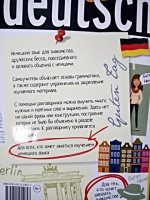 deutsch
Немецкий язык для знакомства,
дружеских бесед, повседневного
и делового общения с немцами.
Самоучитель объясняет основы грамматики,
а также содержит упражнения на закрепление
изученного материала.
С помощью разговорника можно выучить много
нужных и полезных слов и выражений. Здесь нет
ни одной фразы или конструкции, построение
которых не было бы объяснено в разделе
грамматики. К разговорнику прилагается
Для всех, кто хочет заняться изучением
немецкого языка
Guten Tag
Berlin
Для тех,
кто хочет